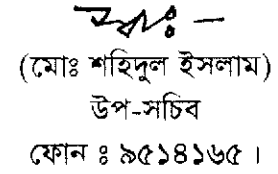 স্বাঃ —
(মোঃ শহিদুল ইসলাম)
উপ-সচিব
ফোন ঃ ৯৫১৪১৬৫ ।